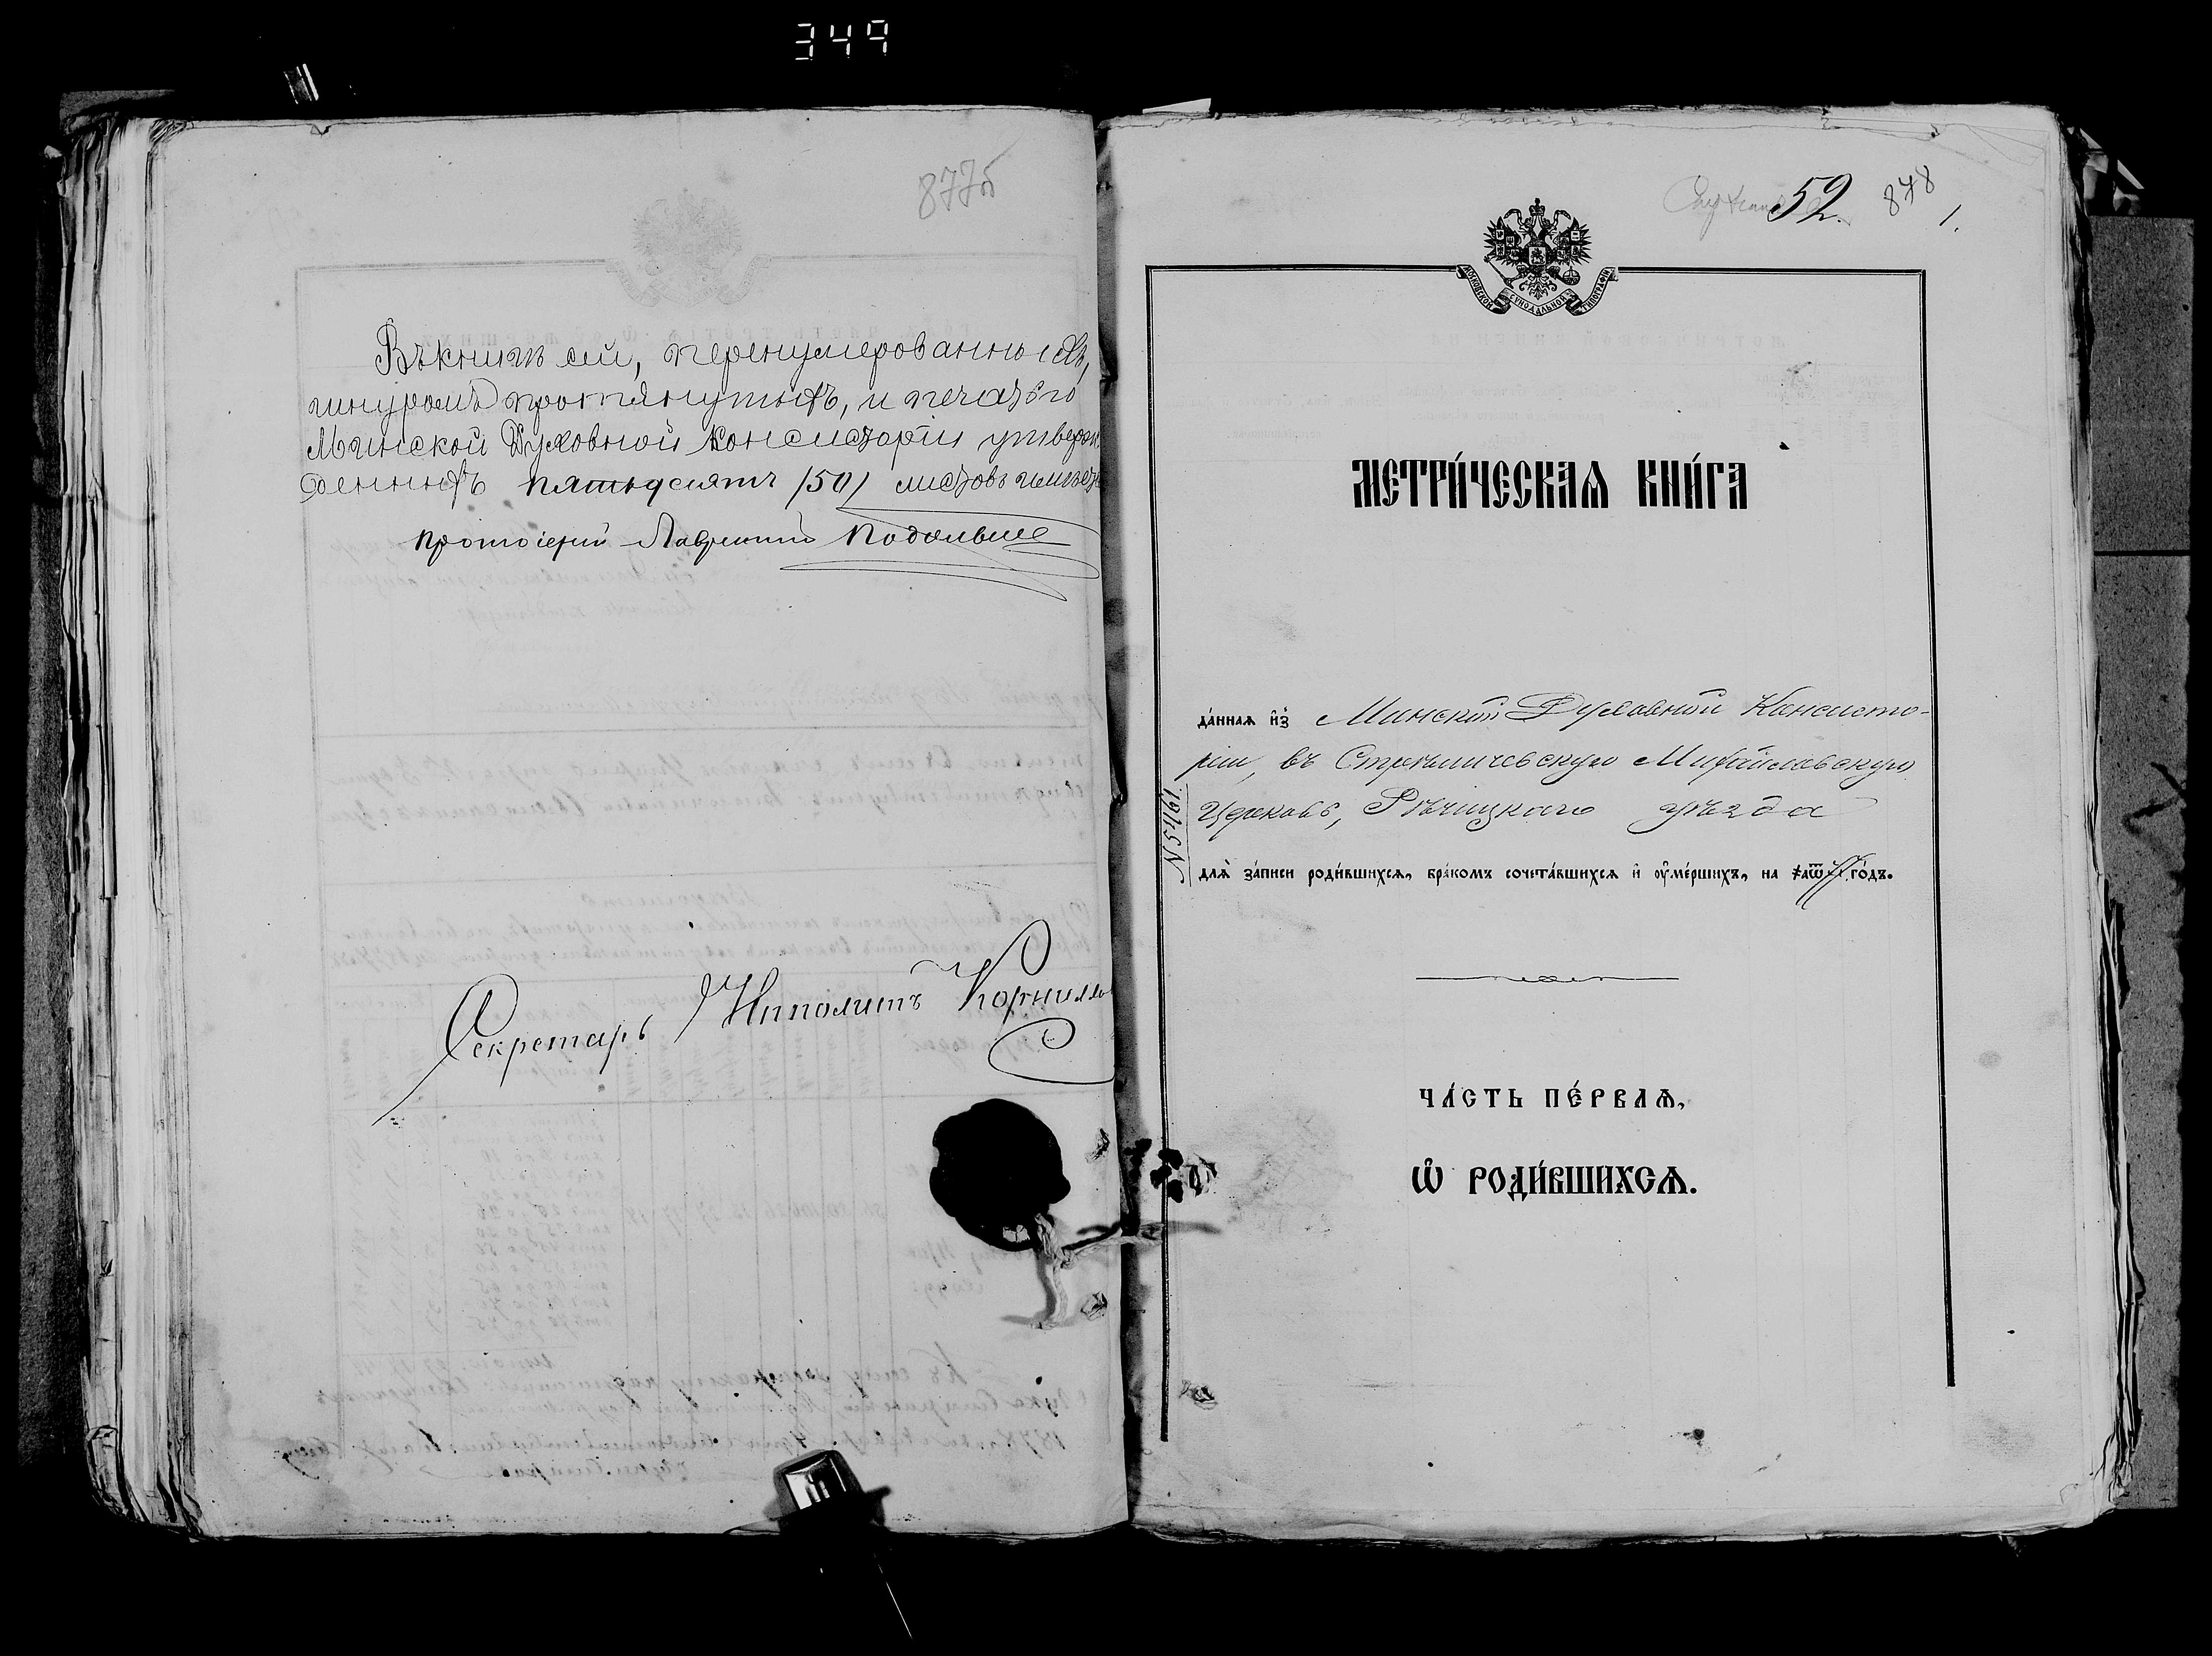 349
877б
Въ книгѣ сей, перенумерованныхъ,
шнуромъ протянутыхъ, и печатью
Минской Духовной Консисторіи утверж
денныхъ пятьдесятъ /50/ листовъ
протоіерей Лаврентій
Секретарь Ипполитъ Корнилло
52. 878 1.
МОСКОВСКОЙ СУНОДАЛЬНОЙ ТИПОГРАФІИ
МЕТРИ́ЧЕСКАѦ КНИ́ГА
да́ннаѧ и҆з̾ Минской Духовной Консисто-
ріи, въ Стрѣличевскую Михайловскую
Церковь, Рѣчицкаго уѣзда
№ 57/61
длѧ̀ за́писи роди́вшихсѧ, бра́комъ сочета́вшихсѧ и҆ оу҆ме́ршихъ, на го́дъ.
ЧА́СТЬ ПЕ́РВАѦ,
Ѽ РОДИ́ВШИХСѦ.